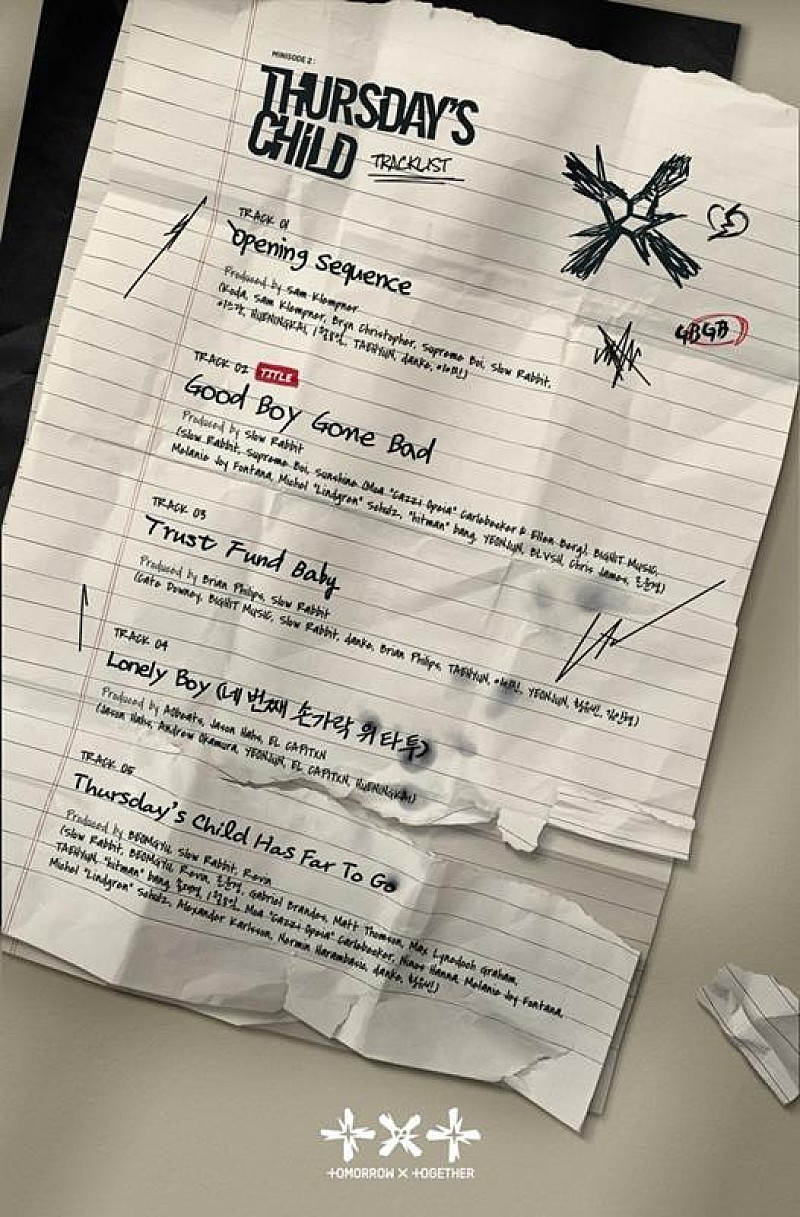 MINISODE 2:
THURSDAY'S
CHILD TRACKLIST
TRACK 01
Opening Sequence
Produced by Sam Klempner
(Koda, Sam Klempner, Bryn Christopher, Supreme Boi, Slow Rabbit,
이스란, HUENINGKAI, 1월8일, TAEHYUN, danke,
GBGB
TRACK 02 TITLE
Good Boy Gone Bad
Produced by Slow Rabbit
(Slow Rabbit, Supreme Boi, Sunshine (Moa "Cazzi Opeia" Carlebecker & Ellen Berg), BIGHIT MUSIC,
Melanie Joy Fontana, Michel "Lindgren" Schulz, "hitman" bang, YEONJUN, BLVSH, Chris James,
TRACK 03
Trust Fund Baby
Produced by Brian Philips, Slow Rabbit
(Cate Downey, BIGHIT MUSIC, Slow Rabbit, danke, Brian Philips, TAEHYUN, YEONJUN,
TRACK 04
Lonely Boy (네 번째 손가락 위 타투)
Produced by Aobeats, Jason Hahs, EL CAPITXN
(Jason Hahs, Andrew Okamura, YEONJUN, EL CAPITXN, HUENINGKAI)
TRACK 05
Thursday's Child Has Far To Go
Produced by BEOMGYU, Slow Rabbit, Revin
(Slow Rabbit, BEOMGYU, Revin, Gabriel Brandes, Matt Thomson, Max Lynedoch Graham,
TAEHYUN, "hitman" bang, 1월8일, Moa "Cazzi Opeia" Carlebecker, Ninos Hanna, Melanie Joy Fontana,
Michel "Lindgren" Schulz, Alexander Karlsson, Nermin Harambasic, danke,
TOMORROW X TOGETHER